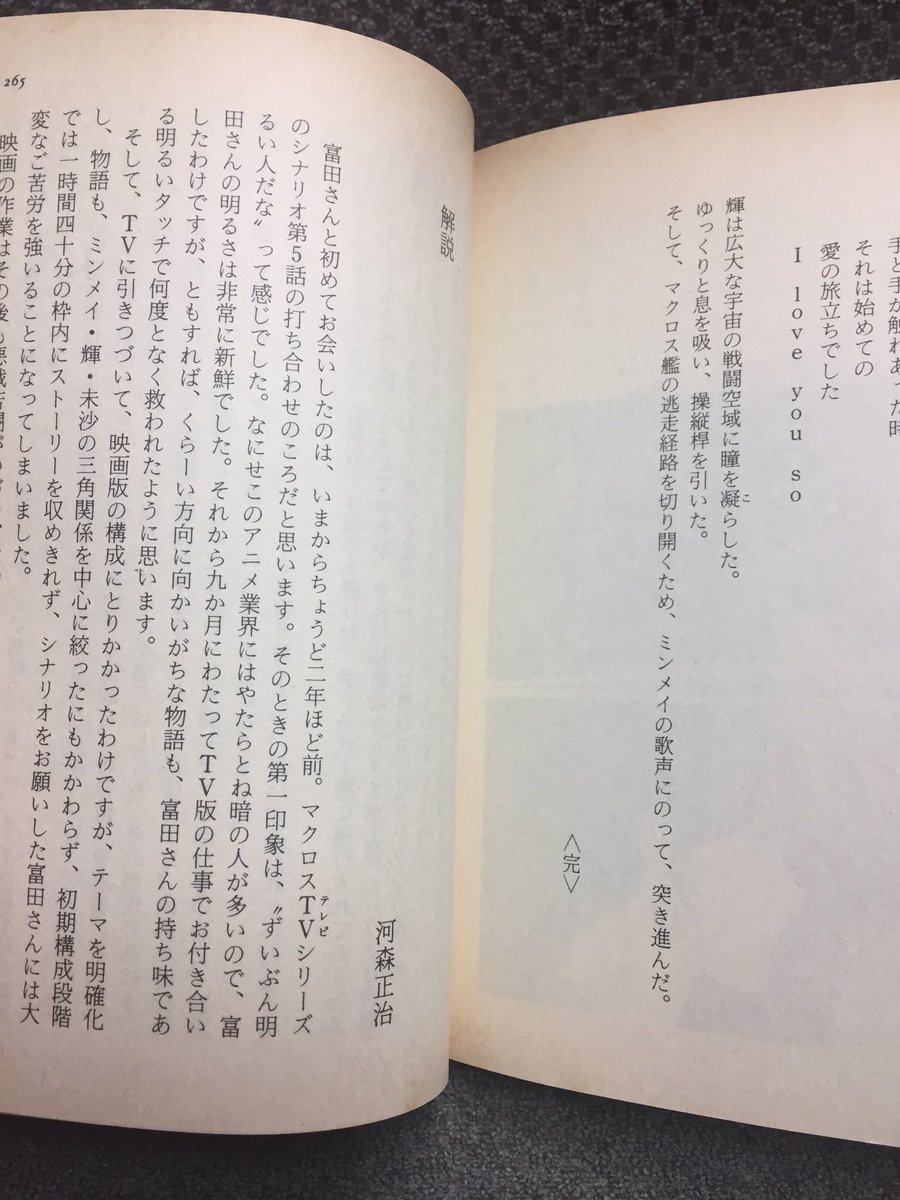 手と手が触れあった時
それは始めての
愛の旅立ちでした
I love you so
輝は広大な宇宙の戦闘空域に瞳を凝らした。
ゆっくりと息を吸い、操縦桿を引いた。
そして、マクロス艦の逃走経路を切り開くため、ミンメイの歌声にのって、突き進んだ。
〈完〉
解説
河森正治
富田さんと初めてお会いしたのは、いまからちょうど二年ほど前。マクロスTVシリーズ
のシナリオ第5話の打ち合わせのころだと思います。そのときの第一印象は、〝ずいぶん明
るい人だな〟って感じでした。なにせこのアニメ業界にはやたらとね暗の人が多いので、富
田さんの明るさは非常に新鮮でした。それから九か月にわたってTV版の仕事でお付き合い
したわけですが、ともすれば、くらーい方向に向かいがちな物語も、富田さんの持ち味であ
る明るいタッチで何度となく救われたように思います。
そして、TVに引きつづいて、映画版の構成にとりかかったわけですが、テーマを明確化
し、物語も、ミンメイ・輝・未沙の三角関係を中心に絞ったにもかかわらず、初期構成段階
では一時間四十分の枠内にストーリーを収めきれず、シナリオをお願いした富田さんには大
変なご苦労を強いることになってしまいました。
映画の作業はその後も悪戦苦闘が
265